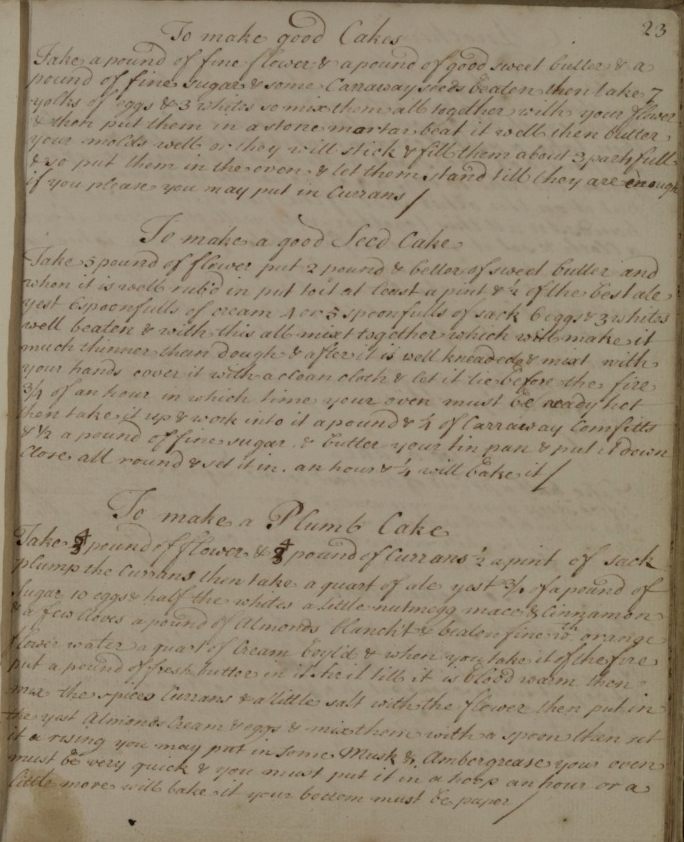 23
To make good Cakes
Take a pound of fine flower & a pound of good sweet butter & a
pound of fine sugar & some Carraway seeds beaten then take 7
yolks of eggs & 3 whites so mix them all together with your flower
& then put them in a stone mortar beat it well then butter
your molds well or they will stick & fill them about 3 parts full
& so put them in the oven & let them stand till they are enough
if you please you may put in Currans /
To make a good Seed Cake
Take 3 pound of flower put 2 pound & better of sweet butter and
when it is well rub'd in put to it at least a pint & ½ of the best ale
yest 6 spoonfulls of cream 4 or 5 spoonfulls of sack 6 eggs & 3 whites
well beaten & with this all mixt together which will make it
much thinner than dough & after it is well kneaded & mixt with
your hands cover it with a clean cloth & let it lie before the fire
¾ of an hour in which time your oven must be ready hot
then take it up & work into it a pound & ¼ of Carraway Comfitts
& ½ a pound of fine sugar & butter your tin pan & put it down
Close all round & set it in. an hour & ¼ will bake it /
To make a Plumb Cake
Take 4 pound of flower & 4 pound of Currans ½ a pint of sack
plump the Currans then take a quart of ale yest ¾ of a pound of
Sugar 10 eggs & half the whites a little nutmegg mace & Cinnamon
& a few Cloves a pound of Almonds blanch't & beaten fine wth orange
flower water a quart of Cream boyl'd & when you take it of the fire
put a pound of fresh butter in it stir it till it is blood warm then
mix the spices Currans & a little salt with the flower then put in
the yest Almonds Cream & eggs & mix them with a spoon then set
it a rising you may put in some Musk & Ambergrease your oven
must be very quick & you must put it in a hoop an hour or a
little more will bake it your bottom must be paper /